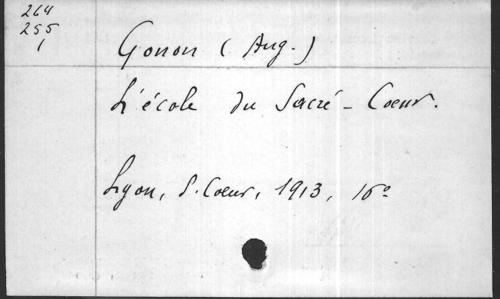 264
255
1
Gonon (Aug.)
L'école du Sacré-Coeur.
Lyon, S. Coeur, 1913, 16°